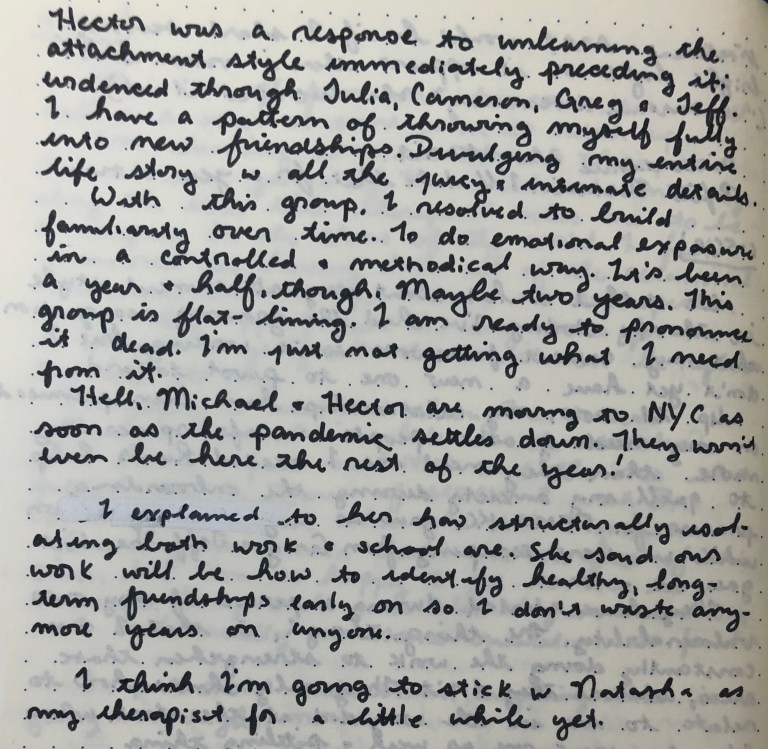 Hector was a response to unlearning the
attachment style immediately preceding it;
evidenced through Julia, Cameron, Greg & Jeff.
I have a pattern of throwing myself fully
into new friendships. Divulging my entire
life story w all the juicy & intimate details.
With this group, I resolved to build
familiarity over time. To do emotional exposure
in a controlled & methodical way. It's been
a year & half, though. Maybe two years. This
group is flat-lining. I am ready to pronounce
it dead. I'm just not getting what I need
from it.
Hell, Michael & Hector are moving to NYC as
soon as the pandemic settles down. They won't
even be here the rest of the year!
I explained to her how structurally isol-
ating both work & school are. She said our
work will be how to identify healthy, long-
term friendships early on so I don't waste any-
more years on anyone.
I think I'm going to stick w Natasha as
my therapist for a little while yet.